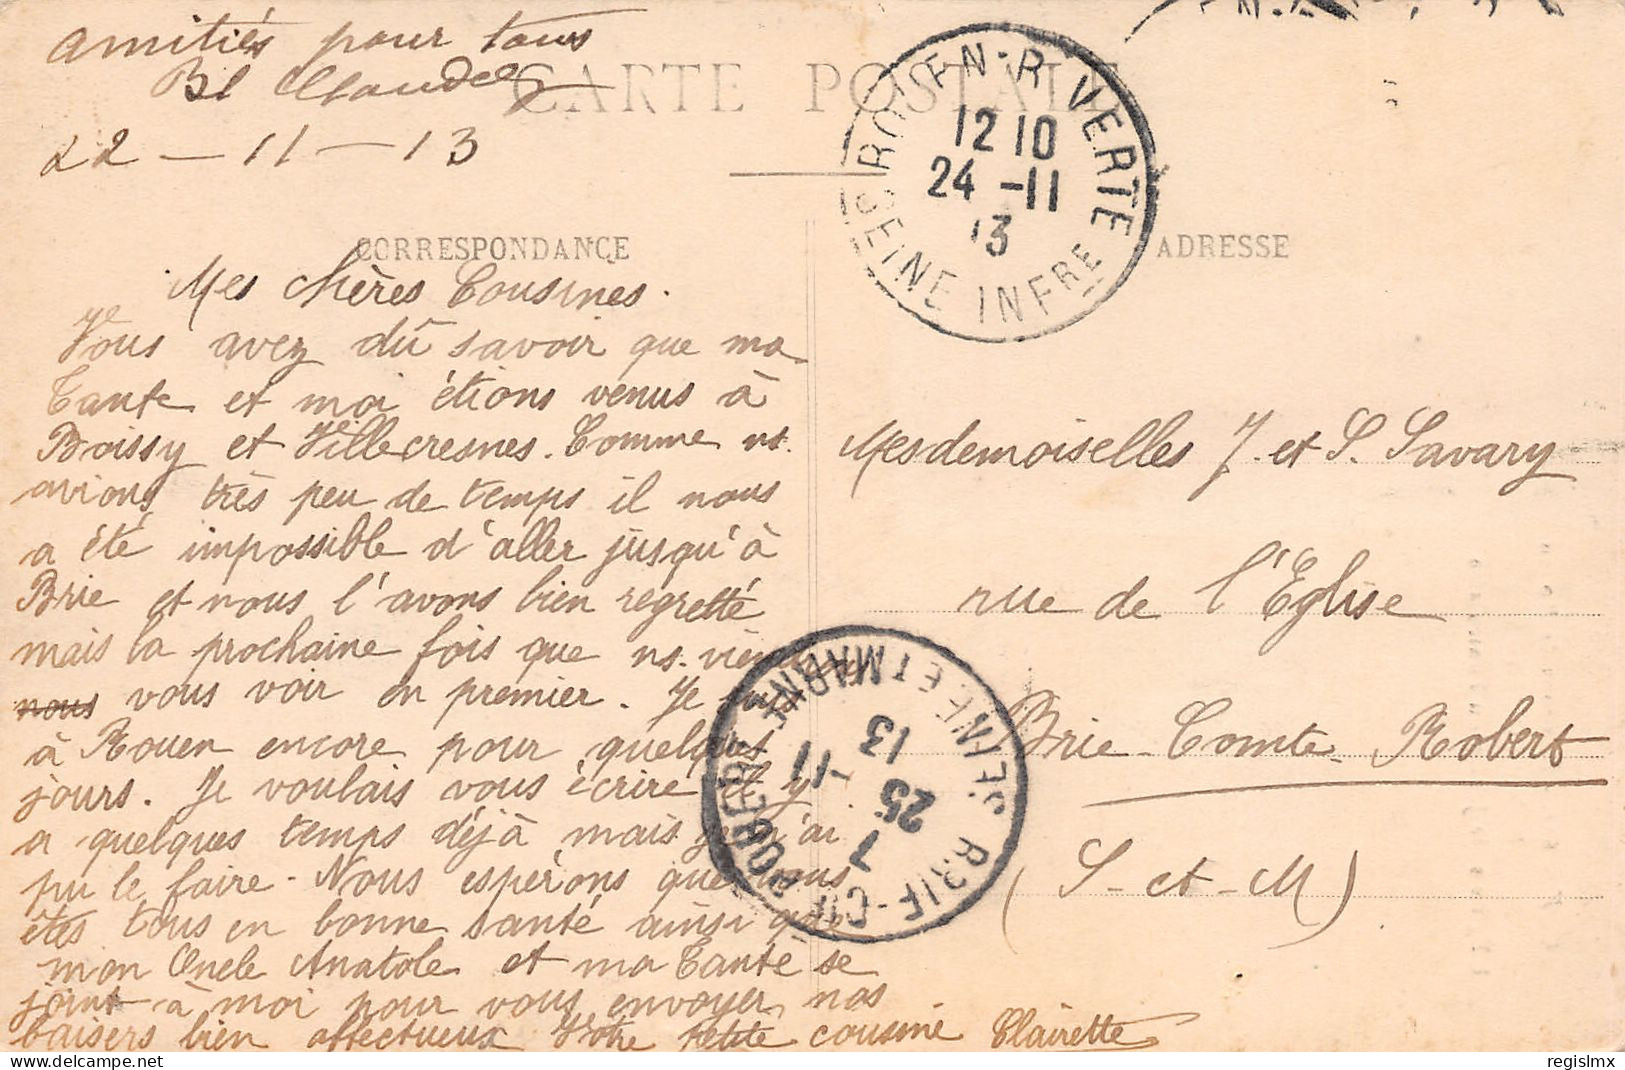 amitiés pour tous
22 - 11 - 13
CARTE POSTALE
ROUEN - R. VERTE
12 10
24 - 11
13
SEINE INFRE
CORRESPONDANCE
Mes chères Cousines.
Vous avez dû savoir que ma
Tante et moi étions venus à
Boissy et Villecresnes. Comme ns.
avions très peu de temps il nous
a été impossible d'aller jusqu'à
Brie et nous l'avons bien regretté
mais la prochaine fois que ns.
nous vous voir en premier. Je
à Rouen encore pour quelques
jours. Je voulais vous écrire il y
a quelques temps déjà mais je n'ai
pu le faire - Nous espérons que vous
êtes tous en bonne santé ainsi que
mon Oncle Anatole et ma Tante se
joint à moi pour vous envoyer nos
baisers bien affectueux Votre petite cousine Clairette
ADRESSE
Mesdemoiselles J. et S. Savary
rue de l'Eglise
Brie-Comte-Robert
(S-et-M)
BRIE-CTE-ROBERT
7
25
11
13
SEINE ET MARNE
regislmx